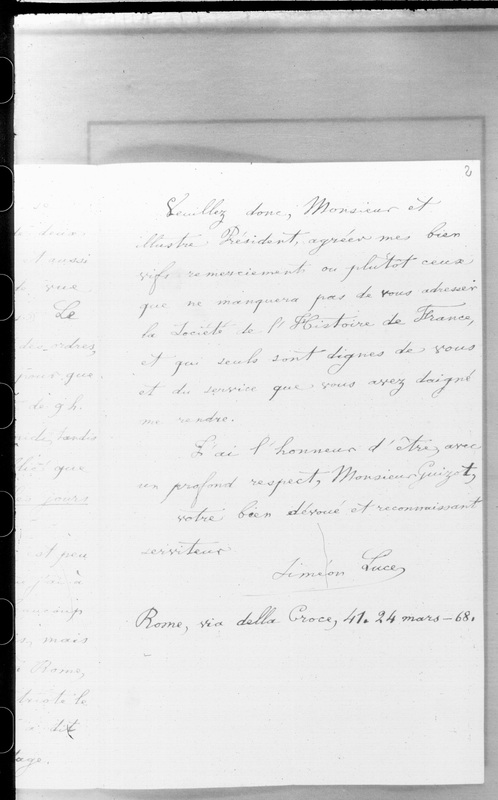 2
Veuillez donc, Monsieur et
illustre Président, agréer mes bien
vifs remerciements ou plutôt ceux
que ne manquera pas de vous adresser
la Société de l'Histoire de France,
et qui seuls sont dignes de vous
et du service que vous avez daigné
me rendre.
J'ai l'honneur d'être, avec
un profond respect, Monsieur Guizot,
votre bien dévoué et reconnaissant
serviteur
Siméon Luce,
Rome, via della Croce, 41. 24 mars - 68.
deux
et aussi
vue
Le
des ordres,
jour que
de 9 h.
tandis
que
jours
et peu
mais
Rome,
le
dit